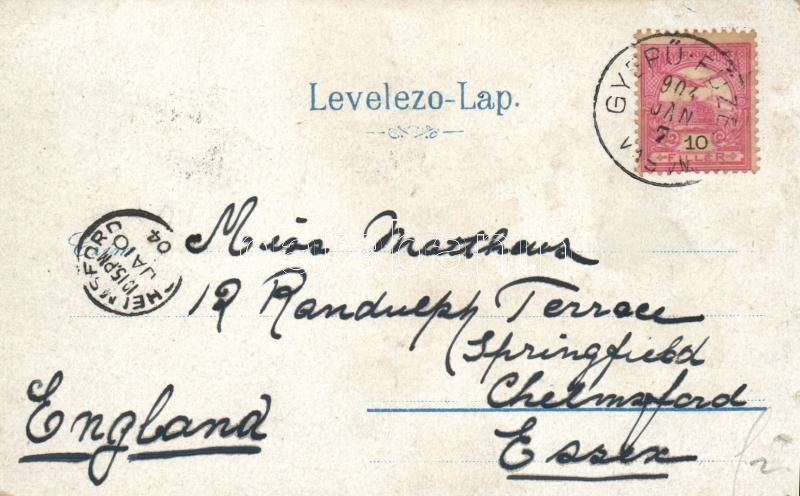 Levelezo-Lap.
GYERŐ-
904
JAN
7
10
FILLER
CHELMSFORD
10 15 PM
JA 10
04
Miss Matthews
12 Randulph Terrace
Springfield
Chelmsford
England
Essex